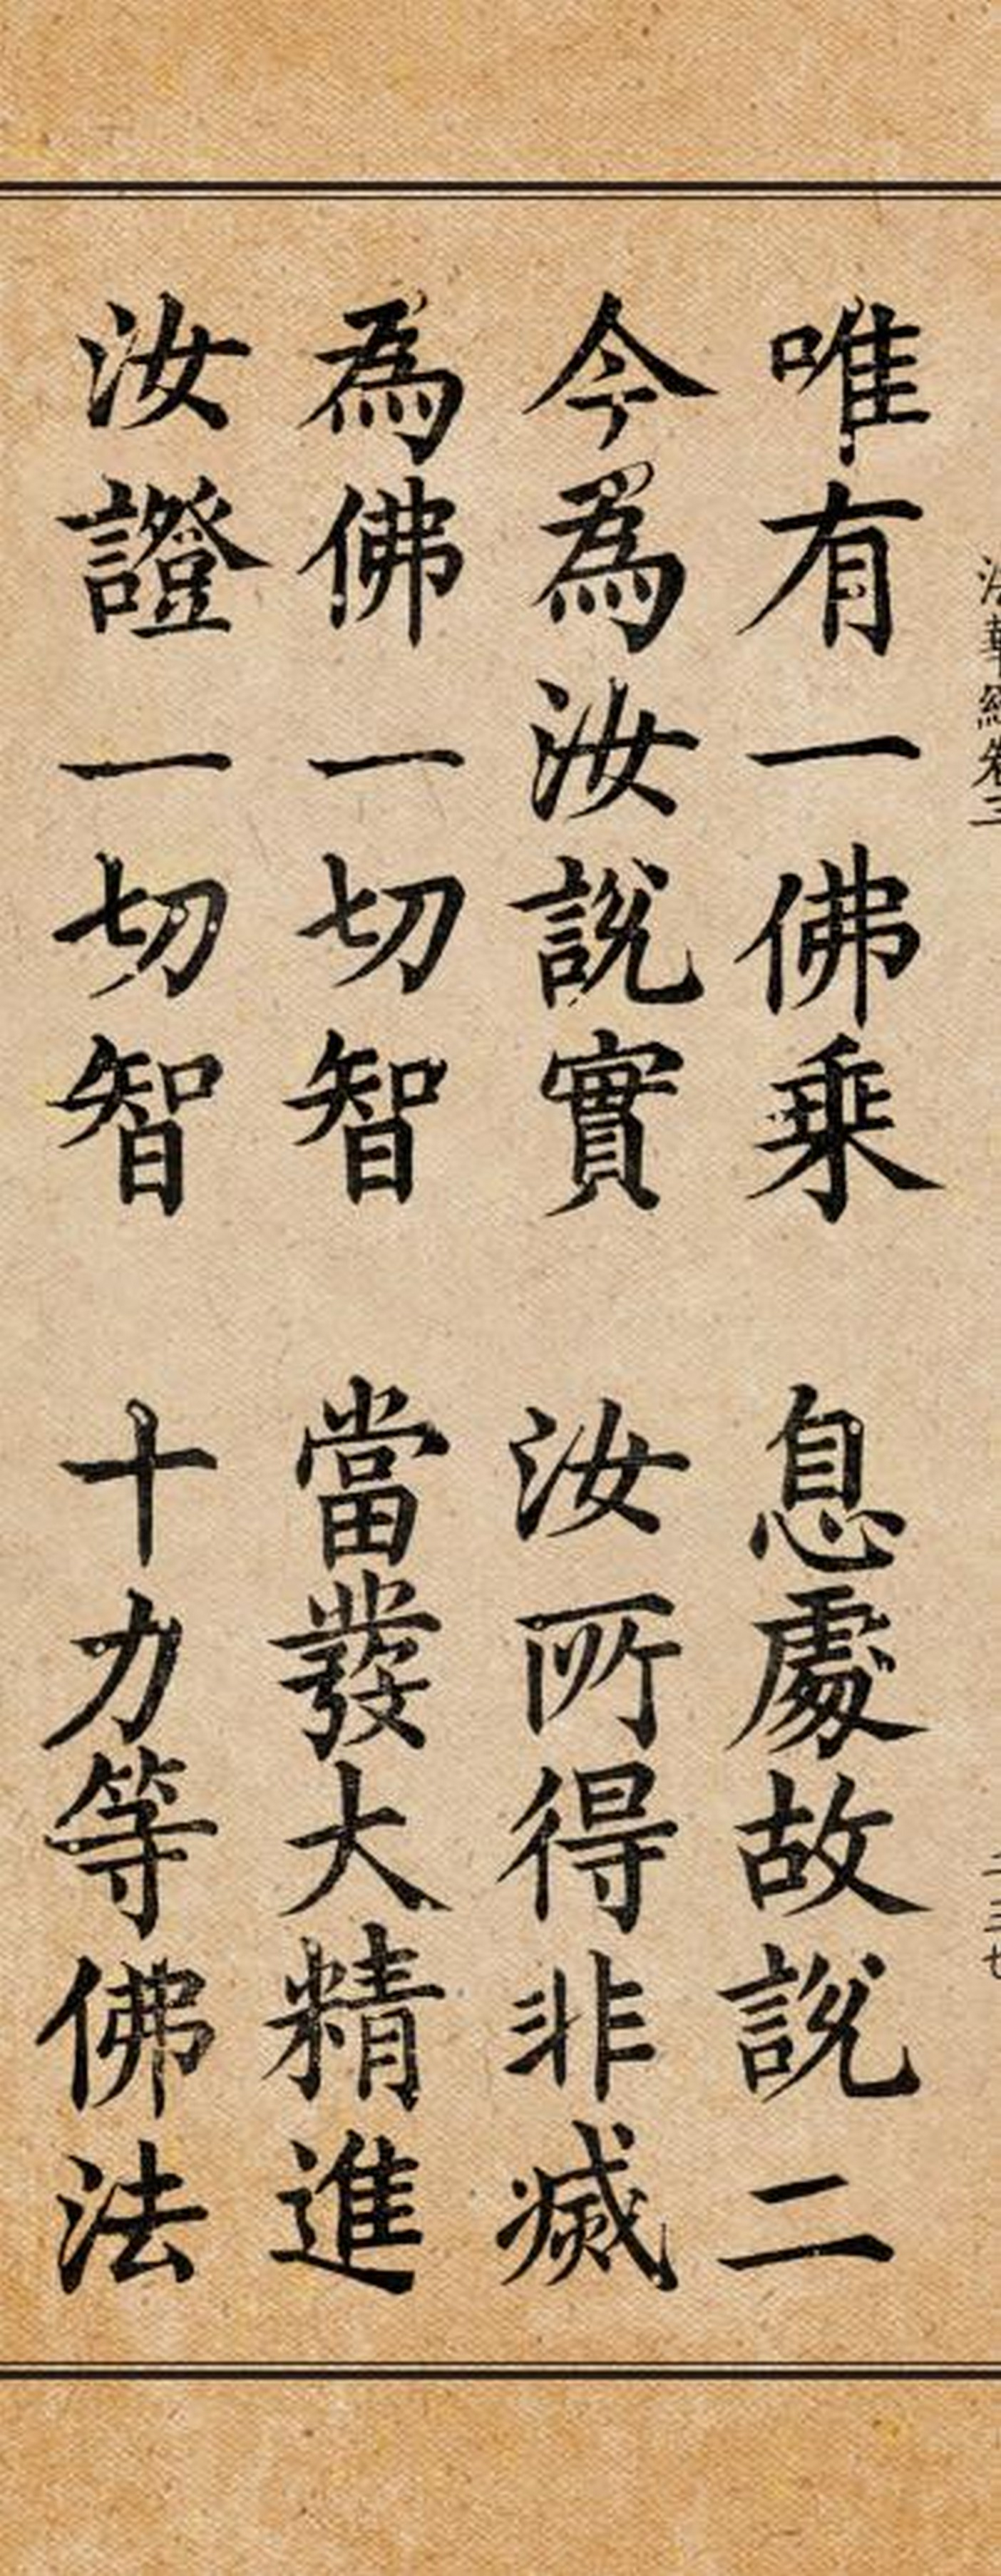 法華經卷三 二三七
唯有一佛乘 息處故說二
今為汝說實 汝所得非滅
為佛一切智 當發大精進
汝證一切智 十力等佛法